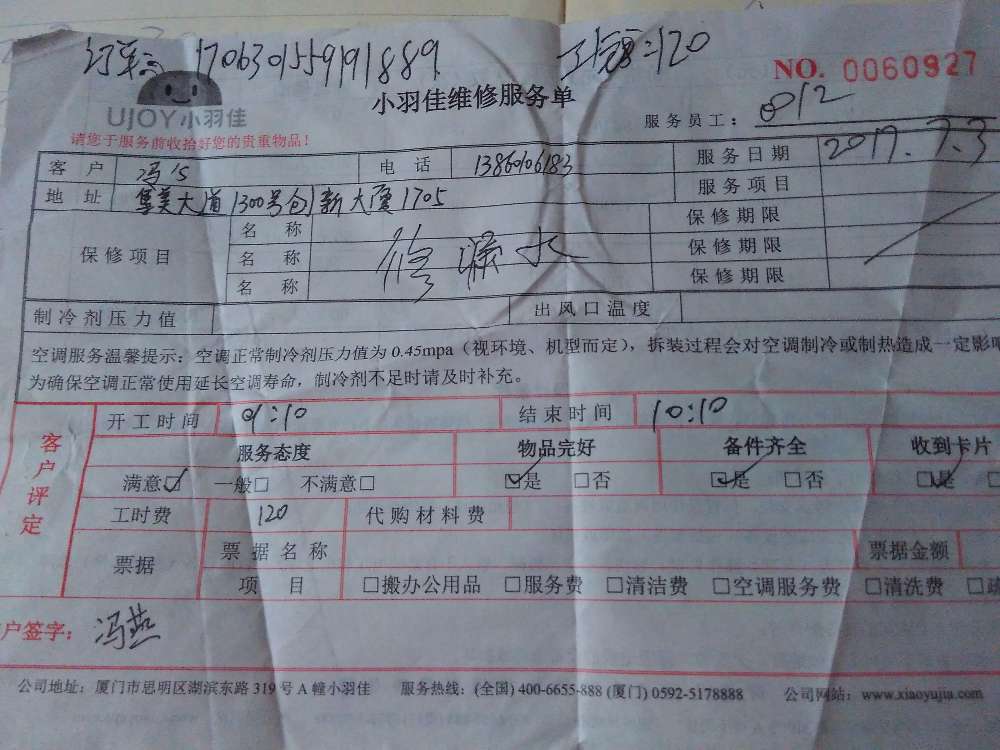 订单: 170630155991889 工钱: 120
NO. 0060927
UJOY小羽佳
小羽佳维修服务单
服务员工: 012
请您于服务前收拾好您的贵重物品!
客户 冯'S 电话 13860106183 服务日期 2017.7.3
地址 集美大道1300号创新大厦1705 服务项目
保修项目 名称 修漏水 保修期限
名称 保修期限
名称 保修期限
制冷剂压力值 出风口温度
空调服务温馨提示: 空调正常制冷剂压力值为0.45mpa(视环境、机型而定),拆装过程会对空调制冷或制热造成一定影响
为确保空调正常使用延长空调寿命,制冷剂不足时请及时补充。
客户评定
开工时间 9:10 结束时间 10:10
服务态度 物品完好 备件齐全 收到卡片
满意☑ 一般□ 不满意□ ☑是 □否 ☑是 □否 ☑是 □
工时费 120 代购材料费
票据 票据名称 票据金额
项目 □搬办公用品 □服务费 □清洁费 □空调服务费 □清洗费 □疏
户签字: 冯燕
公司地址: 厦门市思明区湖滨东路319号A幢小羽佳 服务热线: (全国) 400-6655-888 (厦门) 0592-5178888 公司网站: www.xiaoyujia.com